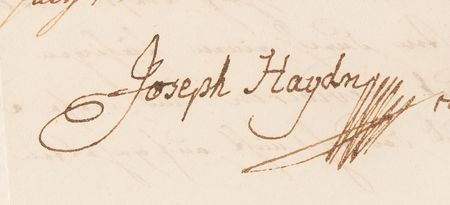 Joseph Haydn